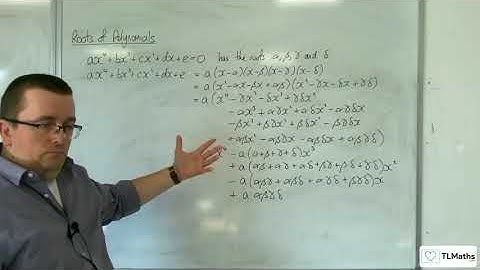 Roots of Polynomials
ax⁴+bx³+cx²+dx+e=0 has the roots α, β, γ and δ
ax⁴+bx³+cx²+dx+e = a(x-α)(x-β)(x-γ)(x-δ)
= a(x²-αx-βx+αβ)(x²-γx-δx+γδ)
= a(x⁴-γx³-δx³+γδx²
-αx³+αγx²+αδx²-αγδx
-βx³+βγx²+βδx²-βγδx
+αβx²-αβγx-αβδx+αβγδ)
x⁴-a(α+β+γ+δ)x³
+a(αβ+αγ+αδ+βγ+βδ+γδ)x²
-a(αβγ+αβδ+αγδ+βγδ)x
+aαβγδ
TLMaths